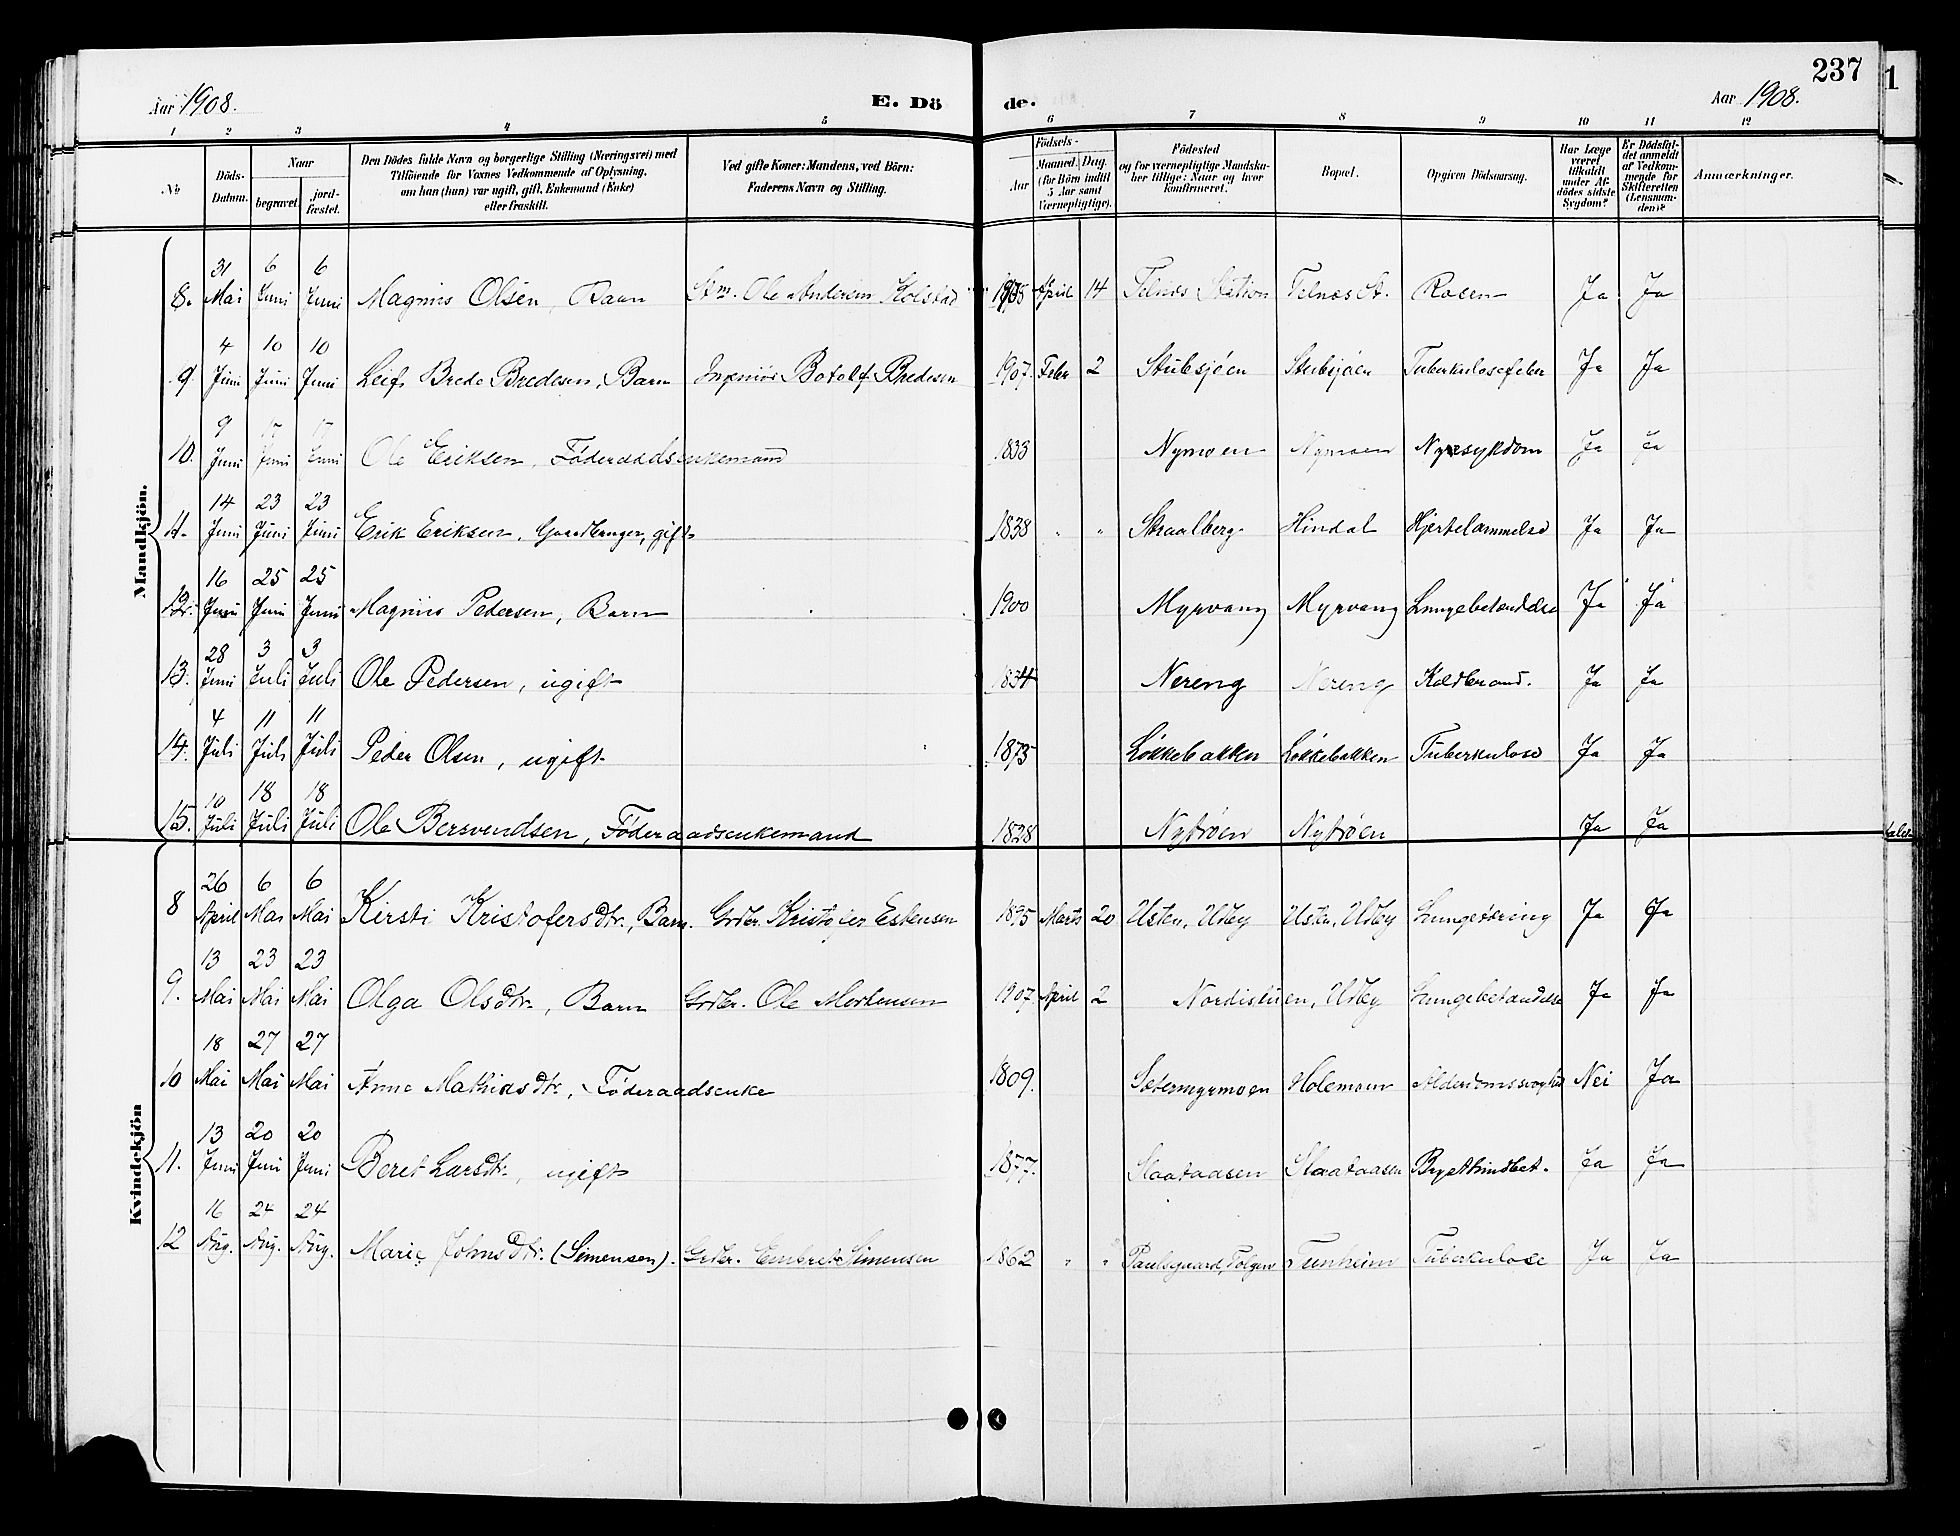 237
Aar 1908. E. Dö de. Aar 1908.
1 2 3 4 5 6 7 8 9 10 11 12
No Döds-Datum. Naar begravet jordfæstet. Den Dödes fulde Navn og borgerlige Stilling (Næringsvei) med Tilföiende for Voxnes Vedkommende af Oplysning, om han (hun) var ugift, gift, Enkemand (Enke) eller fraskilt. Ved gifte Koner: Mandens, ved Börn: Faderens Navn og Stilling. Födsels- Aar Maaned. Dag. (for Börn indtil 5 Aar samt Værnepligtige). Födested og for værnepligtige Mandskaber tillige: Naar og hvor konfirmeret. Bopæl. Opgiven Dödsaarsag. Har Læge været tilkaldt under Afdödes sidste Sygdom? Er Dödsfaldet anmeldt af Vedkommende for Skifteretten (Lensmanden)? Anmærkninger.
Mandkjön.
8. 31 Mai 6 Juni 6 Juni Magnus Olsen, Barn Stm. Ole Andersen Kolstad April 14 Telnes Station Telnes St. Rosen Ja Ja
9. 4 Juni 10 Juni 10 Juni Leif Brede Bredesen, Barn Ingeniør Botolf Bredesen 1907. Febr 2 Stubsjøen Stubsjøen Tuberkulosefeber Ja Ja
10. 9 Juni Juni Juni Ole Eriksen, Føderaadsenkemand 1833 Nymoen Nymoen Nyresykdom Ja Ja
11. 14 Juni 23 Juni 23 Juni Erik Eriksen, Gaardbruger, gift 1838 " " Straalberg Hindal Hjertelammelse Ja Ja
12. 16 Juni 25 Juni 25 Juni Magnus Pedersen, Barn 1900 Myrvang Myrvang Lungebetændelse Ja Ja
13. 28 Juni 3 Juli 3 Juli Ole Pedersen, ugift 1834 Nereng Nereng Koldbrand. Ja Ja
14. 4 Juli 11 Juli 11 Juli Peder Olsen, ugift 1873 Løkkebakken Løkkebakken Tuberkulose Ja Ja
15. 10 Juli 18 Juli 18 Juli Ole Bersvendsen, Føderaadsenkemand 1828 Nytrøen Nytrøen Ja Ja
Kvindekjön
8 26 April 6 Mai 6 Mai Kirsti Kristofersdtr., Barn. Grdbr. Kristofer Estensen 1895 Marts 20 Usten, Udby Usten, Udby Lungetæring Ja Ja
9. 13 Mai 23 Mai 23 Mai Olga Olsdtr., Barn Grdbr. Ole Mortensen 1907. April 2 Nordistuen, Udby Lungebetændelse Ja Ja
10 18 Mai 27 Mai 27 Mai Anne Mathiasdtr., Føderaadsenke 1809. Setermyrmoen Holemoen Alderdomssvaghed Nei Ja
11. 13 Juni 20 Juni 20 Juni Beret Larsdtr., ugift 1877. Slaataasen Slaataasen Brysthindbet. Ja Ja
12 16 Aug. 24 Aug. 24 Aug. Marie Johnsdtr. (Simensen). Grdbr. Embret Simensen 1862 " " Paulsgaard, Tolgen Tunheim Tuberkulose Ja Ja